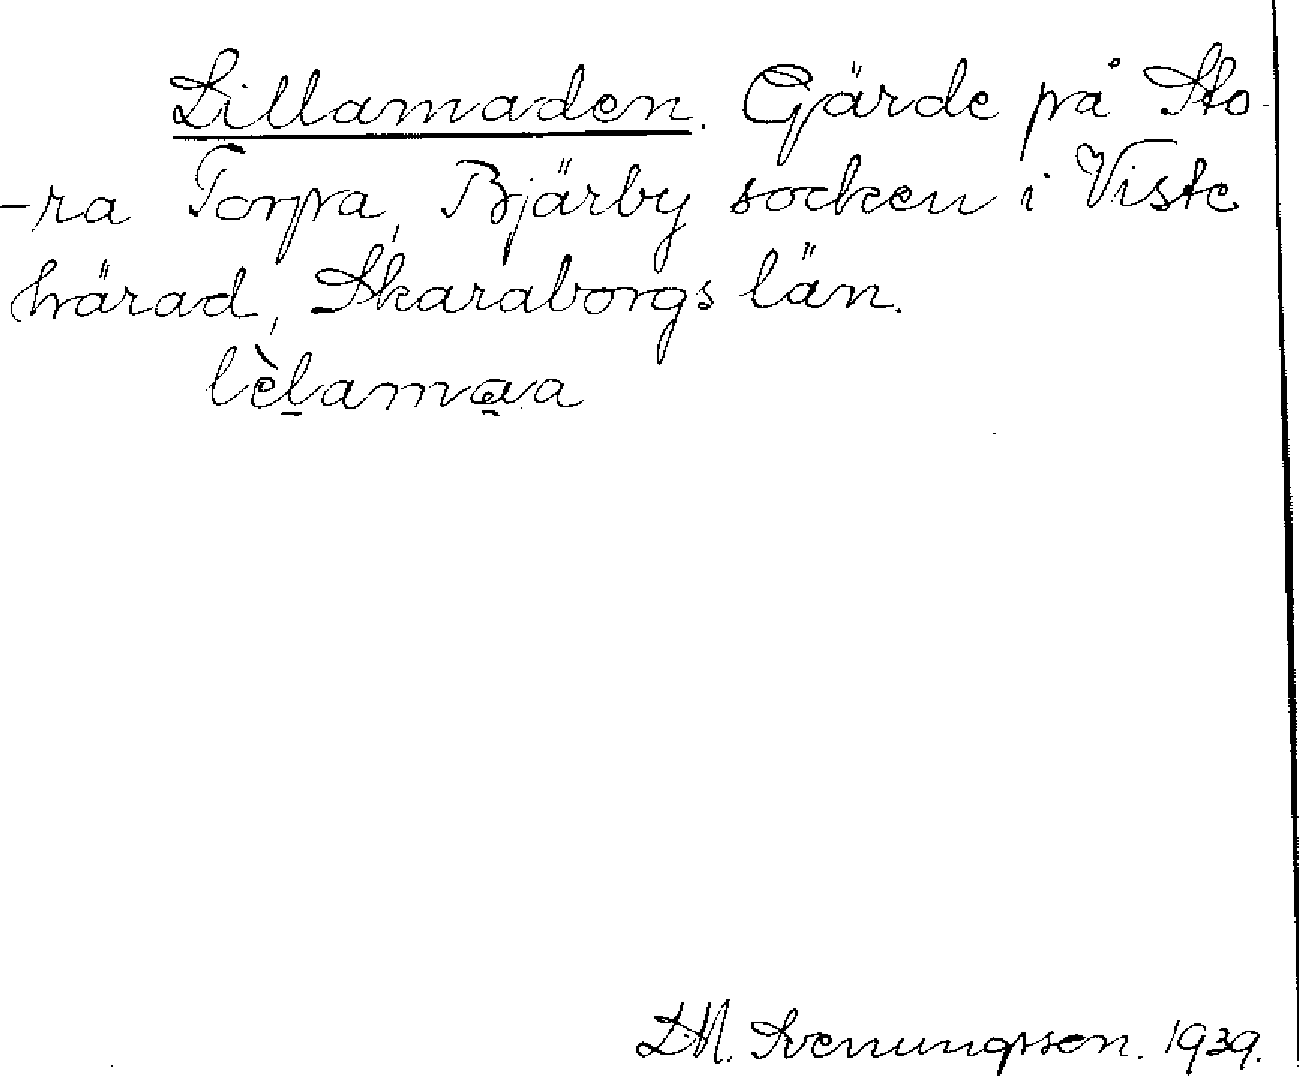 Lillamaden. Gärde på Sto-
-ra Torpa, Bjärby socken i Viste
härad, Skaraborgs län.
lèl̠ama̠a
L.M. Svenungsson. 1939.